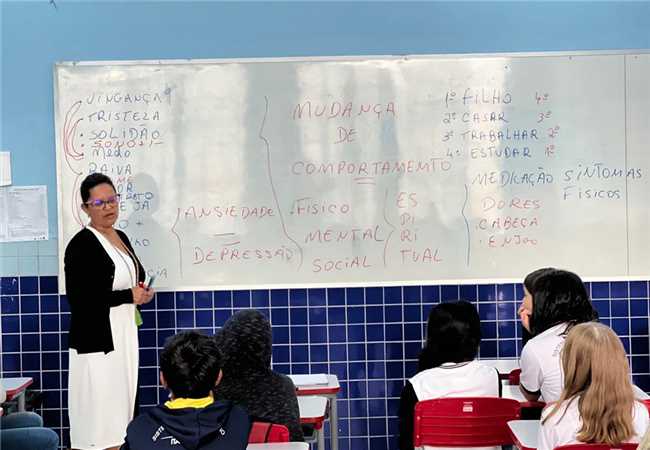 VINGANÇA
TRISTEZA
SOLIDÃO
SONO
MEDO
RAIVA
ANSIEDADE
DEPRESSÃO
MUDANÇA
DE
COMPORTAMENTO
FISICO
MENTAL
SOCIAL
ES
PI
RI
TUAL
1º FILHO 4º
2º CASAR 3º
3º TRABALHAR 2º
4º ESTUDAR 1º
MEDICAÇÃO SINTOMAS
FÍSICOS
DORES
CABEÇA
ENJOO